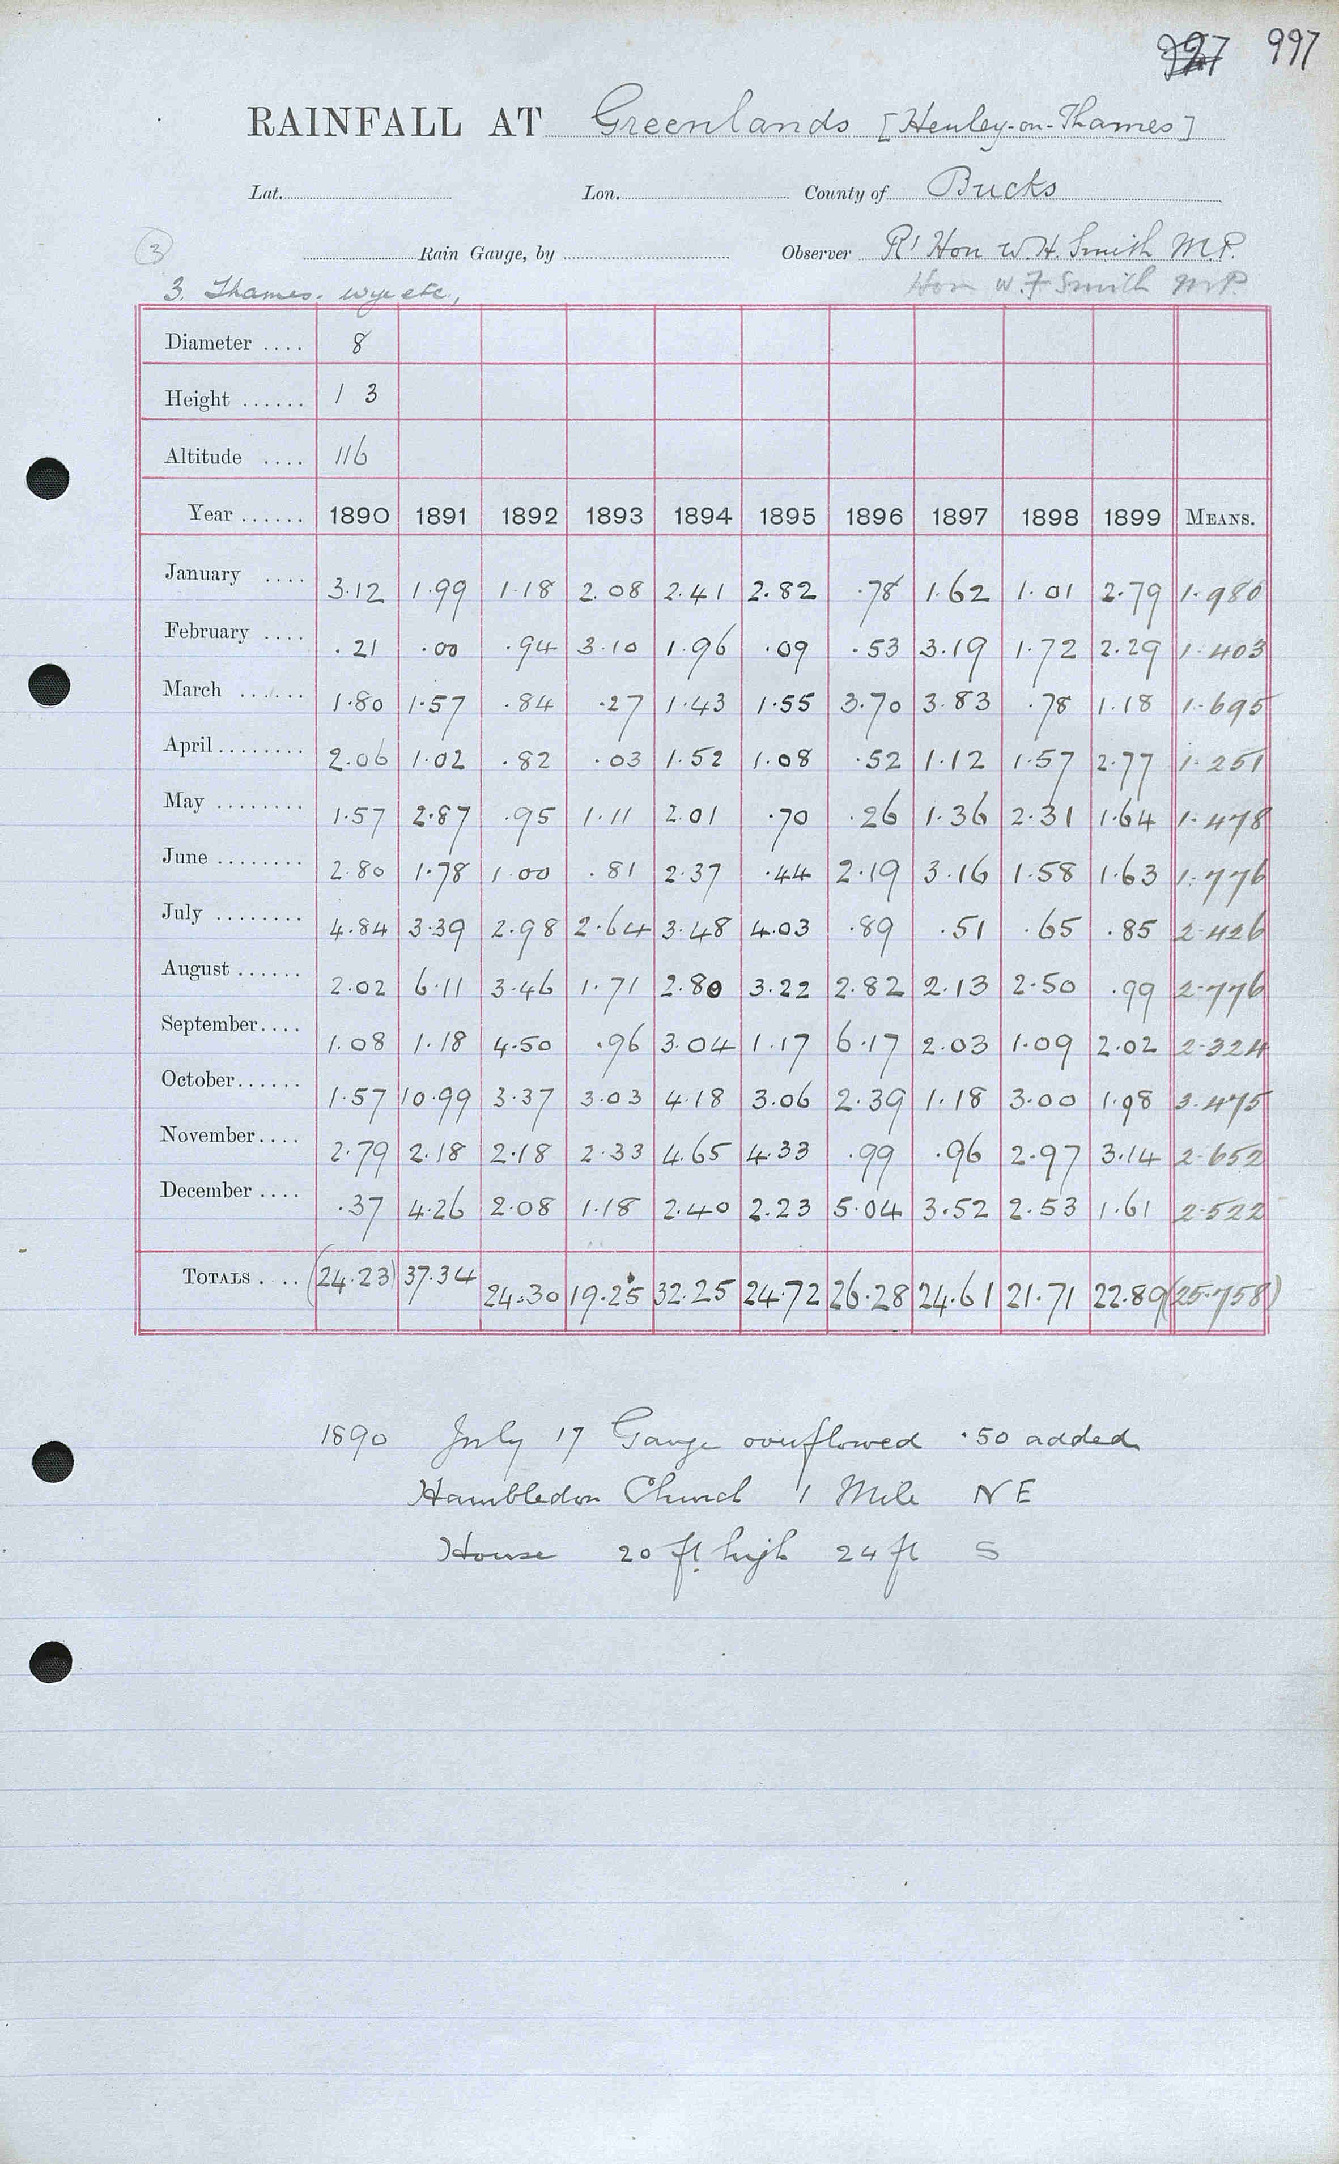 997
RAINFALL AT Greenlands [Henley-on-Thames]
Lat. Lon. County of Bucks
3 Rain Gauge, by Observer Rt Hon W. H. Smith M.P.
3. Thames. Wye etc, Hon W. F Smith M.P.
Diameter .... 8
Height ...... 1 3
Altitude .... 116
Year ...... 1890 1891 1892 1893 1894 1895 1896 1897 1898 1899 MEANS.
January .... 3.12 1.99 1.18 2.08 2.41 2.82 .78 1.62 1.01 2.79 1.980
February .... .21 .00 .94 3.10 1.96 .09 .53 3.19 1.72 2.29 1.403
March ...... 1.80 1.57 .84 .27 1.43 1.55 3.70 3.83 .78 1.18 1.695
April ........ 2.06 1.02 .82 .03 1.52 1.08 .52 1.12 1.57 2.77 1.251
May ........ 1.57 2.87 .95 1.11 2.01 .70 .26 1.36 2.31 1.64 1.478
June ........ 2.80 1.78 1.00 .81 2.37 .44 2.19 3.16 1.58 1.63 1.776
July ........ 4.84 3.39 2.98 2.64 3.48 4.03 .89 .51 .65 .85 2.426
August ...... 2.02 6.11 3.46 1.71 2.80 3.22 2.82 2.13 2.50 .99 2.776
September.... 1.08 1.18 4.50 .96 3.04 1.17 6.17 2.03 1.09 2.02 2.324
October...... 1.57 10.99 3.37 3.03 4.18 3.06 2.39 1.18 3.00 1.98 3.475
November.... 2.79 2.18 2.18 2.33 4.65 4.33 .99 .96 2.97 3.14 2.652
December .... .37 4.26 2.08 1.18 2.40 2.23 5.04 3.52 2.53 1.61 2.522
TOTALS .... (24.23) 37.34 24.30 19.25 32.25 24.72 26.28 24.61 21.71 22.89 (25.758)
1890 July 17 Gauge overflowed .50 added
Hambledon Church 1 Mile NE
House 20 ft high 24 ft S